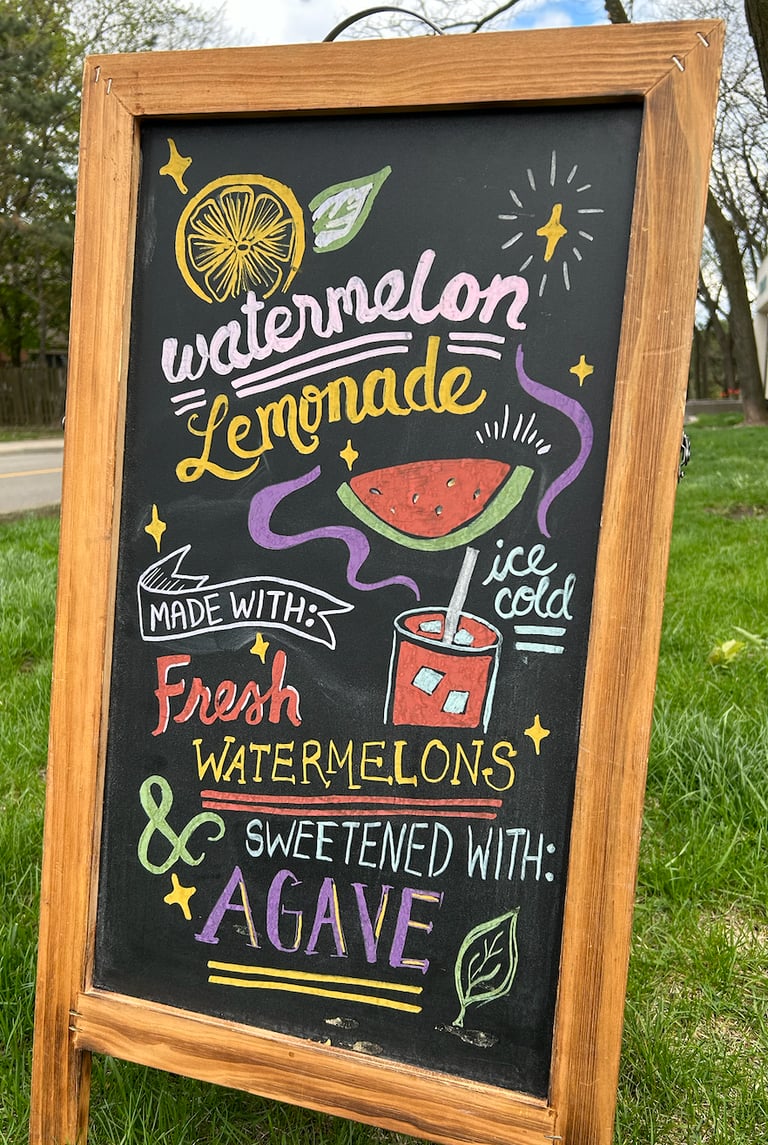 watermelon
Lemonade
ice
cold
MADE WITH:
Fresh
WATERMELONS
& SWEETENED WITH:
AGAVE